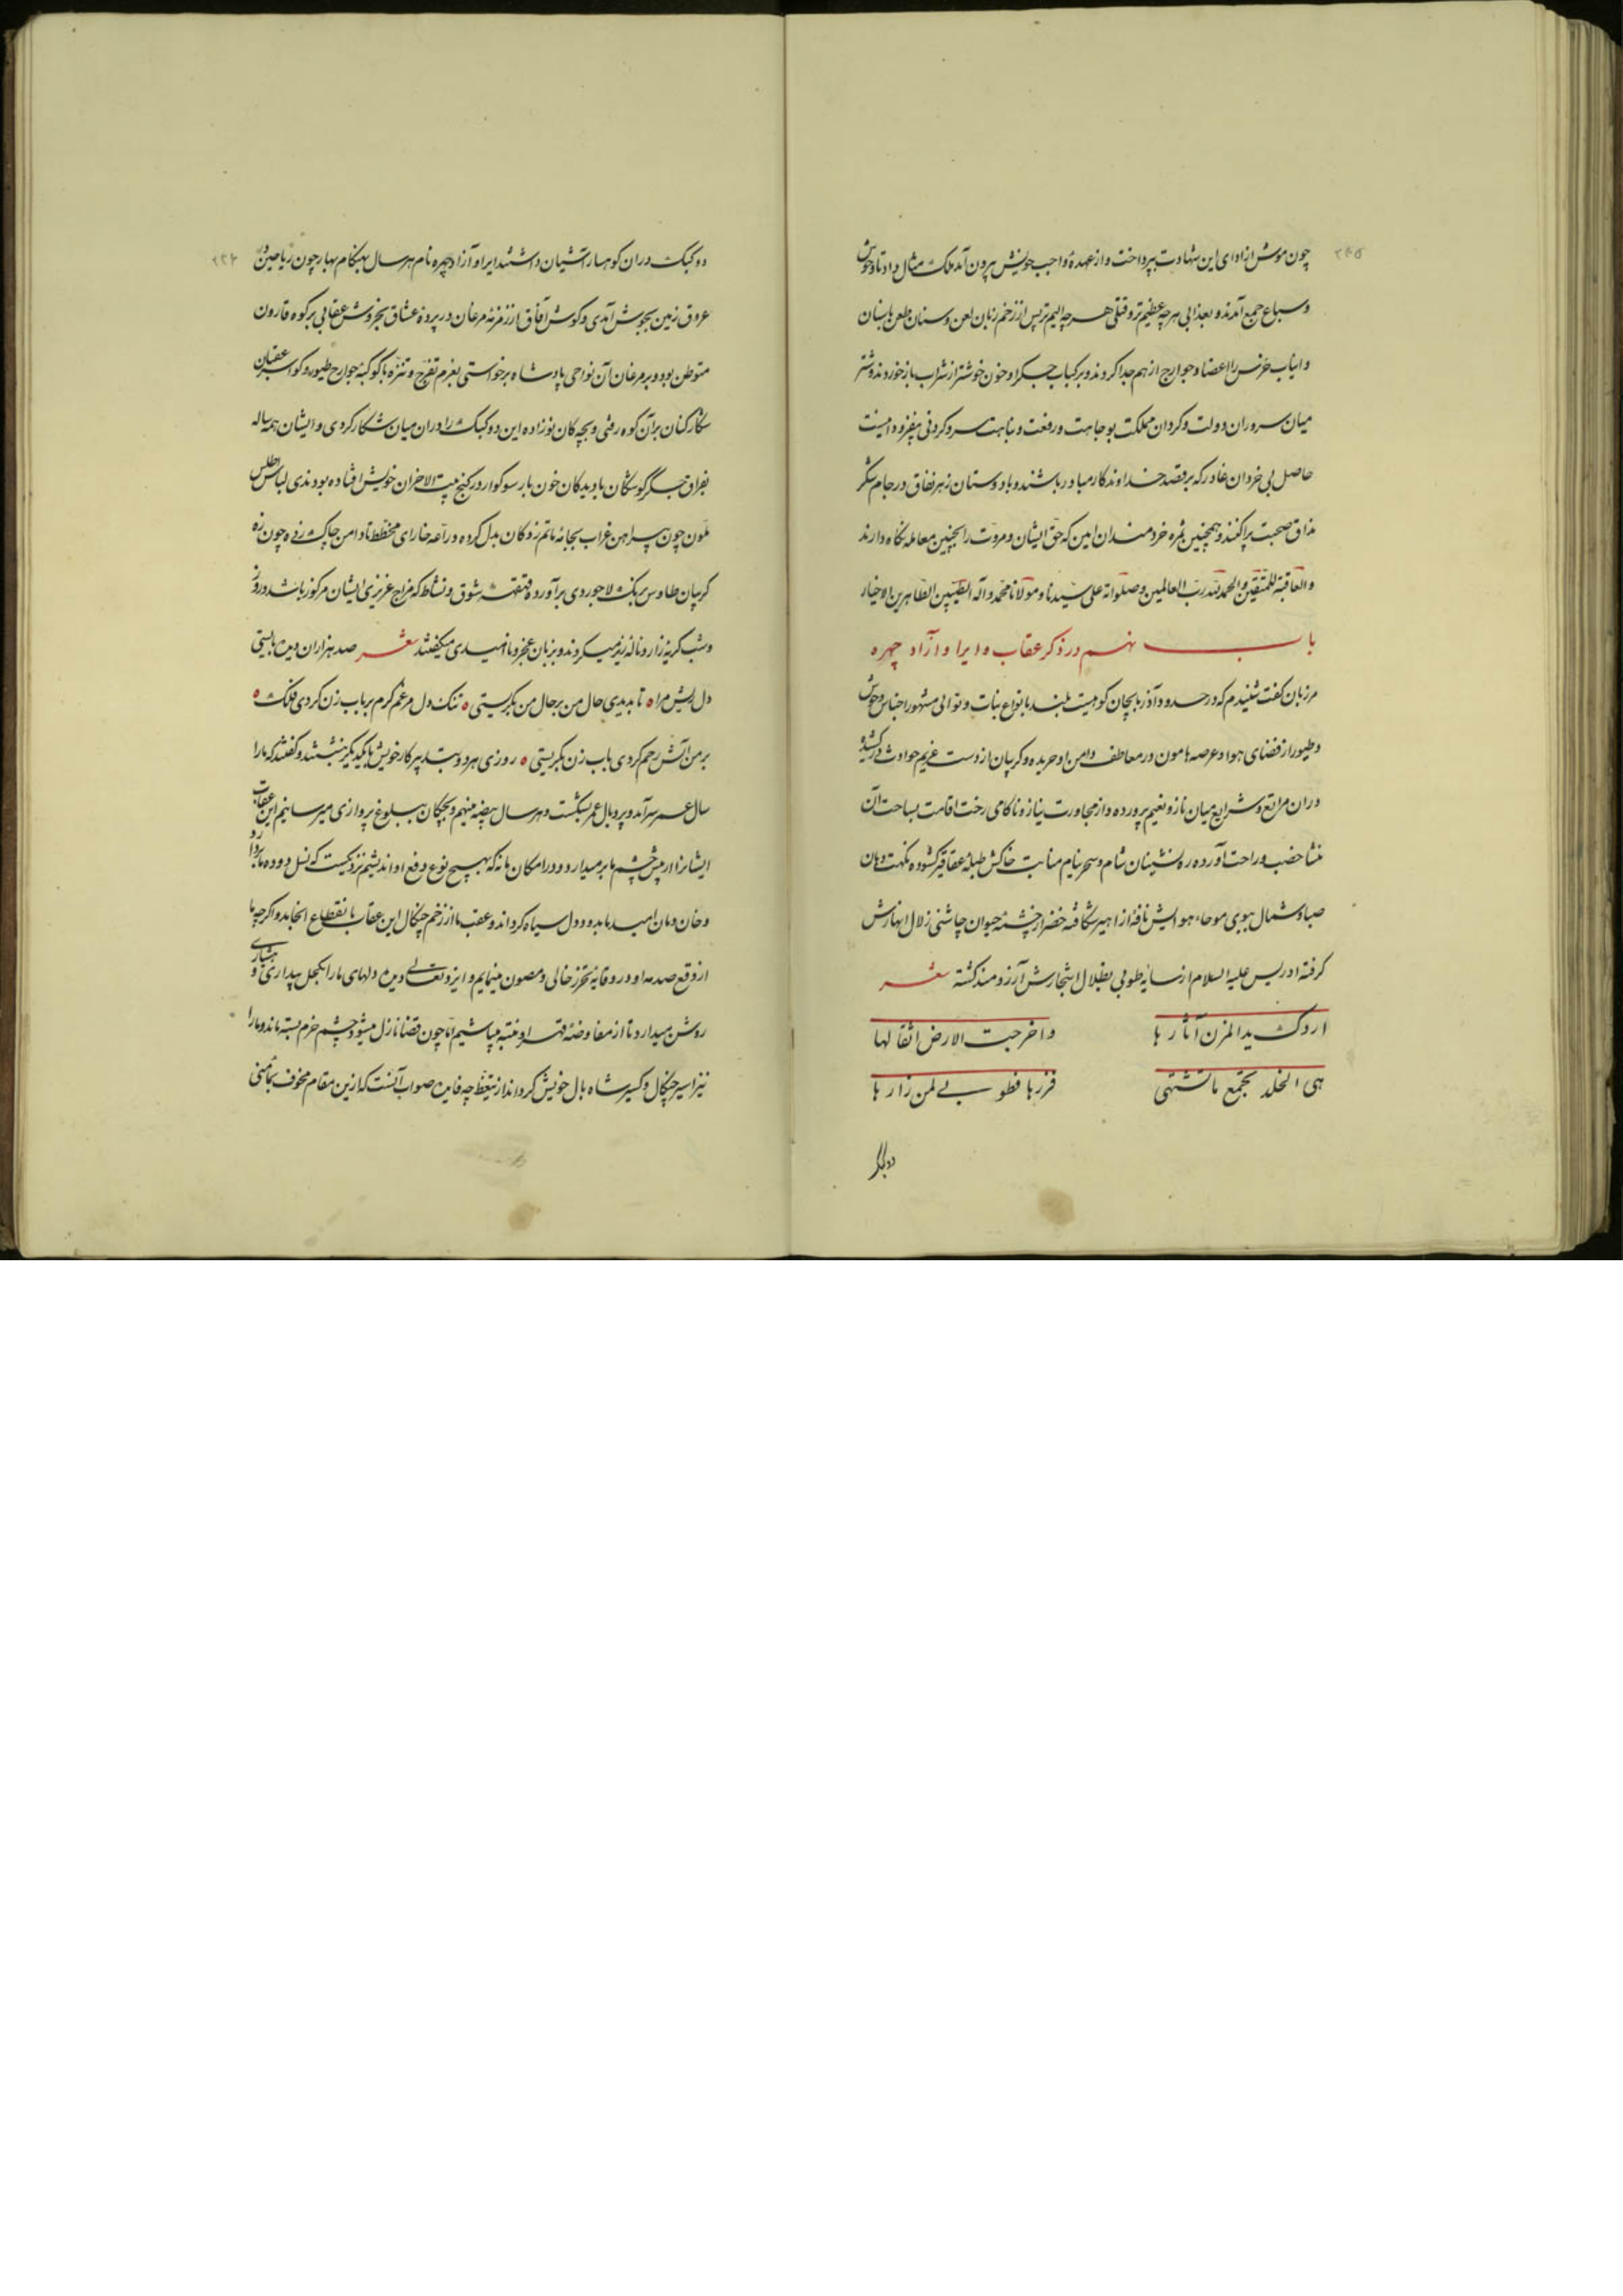 ۲۴۵
چون موش از ادای این شهادت بپرداخت و از عهدهٔ واجب خویش بیرون آمد ملک مثال داد تا وحوش
و سباع جمع آمدند و بعذابی هر چه عظیم‌تر و قتلی هر چه الیم‌تر پس از زخم زبان لعن و سنان طعن باسنان
و انیاب خرس را اعضا و جوارح از هم جدا کردند و بر کباب جگر او خون خوشتر از شراب باز خوردند و شتر
میان سروران دولت و گردان مملکت بوجاهت و رفعت و نباهت سر و گردنی بیفزود اینست
حاصل بی خردان غادر که بر قصد خداوندگار مبادر باشند و با دوستان زهر نفاق در جام شکر
مذاق صحبت پراکنند و همچنین ثمره خردمندان امین که حق ایشان و مروت را بچنین معامله نگاه دارند
والعاقبة للمتقین والحمد لله رب العالمین وصلواته علی سیدنا ومولانا محمد وآله الطیبین الطاهرین الاخیار
باب نهم در ذکر عقاب و ایرا و آزاد چهره
مرزبان گفت شنیدم که در حدود آذربایجان کوهیست بلند بانواع نبات و نوالی مشهور اجناس وحوش
و طیور از فضای هوا و عرصه هامون در معاطف دامن او خزیده و گریبان از دست غریم حوادث در کشیده
در ان مراتع و شرایع میان ناز و نعیم پرورده و از مجاورت نیاز و ناکامی رخت اقامت بساحت آن
منشأ خصب و راحت آورده ره نشینان شام و سحر بنام منابت خاکش طبلهٔ عقاقیر گشوده نکهت دهان
صبا و شمال ببوی هوایش نافه از اهیر شکافته خضر از چشمهٔ حیوان چاشنی زلال انهارش
گرفته ادریس علیه السلام از سایهٔ طوبی بظلال اشجارش آرزومند گشته شعر
ارتک ید المزن آثارها واخرجت الارض اثقالها
هی الخلد تجمع ما تشتهی فزرها فطوبی لمن زارها
دو کبک
دو کبک در ان کوهسار آشیان داشتند ایرا و آزاد چهره نام هر سال بهنگام بهار چون ریاحین در
عروق زمین بجوش آمدی و گوش آفاق از زمزمهٔ مرغان در پردهٔ عشاق بخروش عقابی بر کوه قارون
متوطن بود و بر مرغان آن نواحی پادشاه برخواستی بعزم تفرج و تنزه با کوکبهٔ جوارح طیور و کواسر عقبان
شکارکنان بر آن کوه رفتی و بچه‌کان نوزاده این دو کبک را در ان میان شکار کردی و ایشان همه ساله
بفراق جگر گوشگان با دیدگان خون بار سوکوار در کنج بیت الاحزان خویش افتاده بودندی لباس اطلس
ملون چون پیراهن غراب بجامهٔ ماتم زدگان بدل کرده و دراعه خارای مخطط تا دامن چاک زده چون زه
گریبان طاوس برنگ لاجوردی برآورده قهقهه شوق و نشاط که مزاج غریزی ایشان مرکوز باشد در روز
و شب گریهٔ زار و نالهٔ زیر میکردند و بزبان عجز و ناامیدی میگفتند شعر صد هزاران دیده بایستی
دل ریش مرا تا بدیدی حال من بر حال من بگریستی تنگ دل مرغم گرم بر باب زن کردی فلک
بر من آتش رحم کردی باب زن بگریستی روزی هر دو بتدبیر کار خویش با یکدیگر بنشستند و گفتند که ما را
سال عمر سر آمد و پر و بال عمر بشکست و هر سال بیضه مینهیم و بچگان ببلوغ پروازی میرسانیم این عقاب
ایشانرا از پیش چشم ما بر میدارد و در امکان ما نه که بهیچ نوع دفع او اندیشیم نزدیکست که نسل و دوده ما بر دارد
و خان و مان امید ما بدود دل سیاه گرداند و عقب ما از زخم چنگال این عقاب بانقطاع انجامد و اگر چه ما
از وقع صدمه او در وقایه تحرز خالی و مصون مینماییم و ایزد تعالی دیده دلهای ما را بکحل بیداری و هشیاری
روشن میدارد تا از مفاوضهٔ قهر او متنبه میباشیم اما چون قضا نازل میشود چشم حزم بسته ماند و ما را
نیز اسیر چنگال و کسیر شاه بال خویش گرداند از تیقظ چه فایده صواب آنست که ازین مقام مخوف بمأمنی